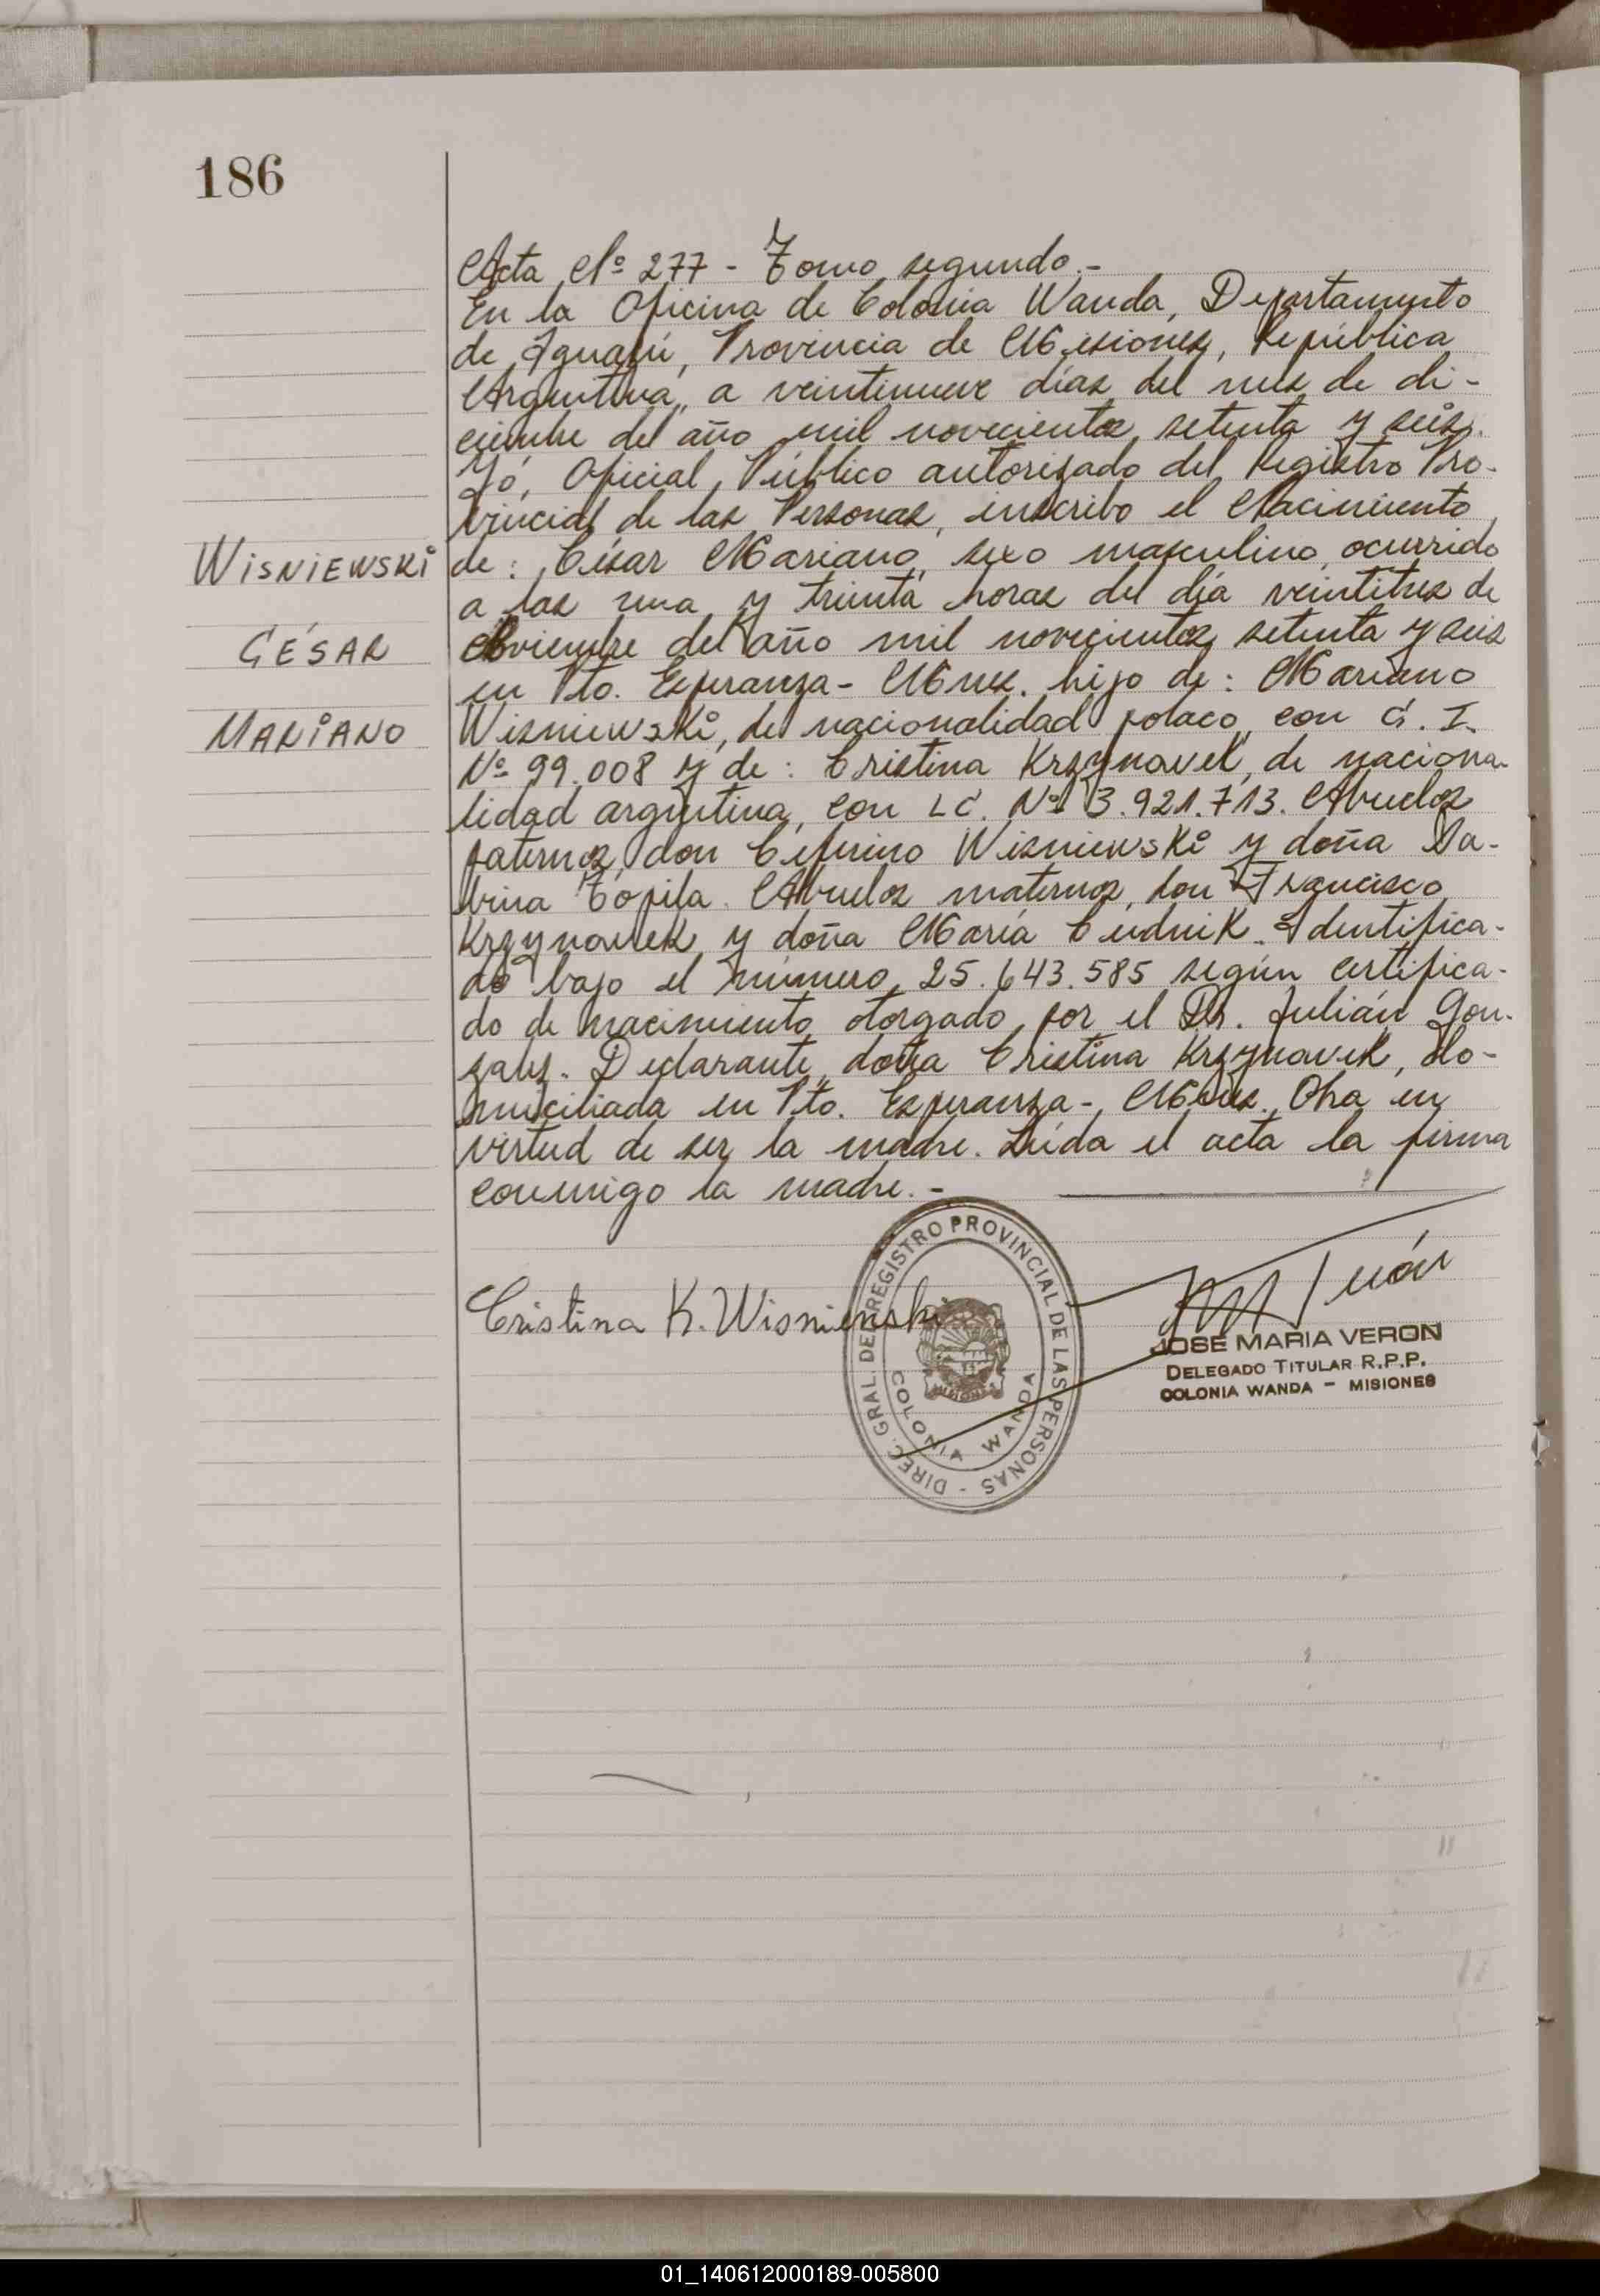 186
Acta Nº 277 - Tomo segundo.-
En la Oficina de Colonia Wanda, Departamento
de Iguazú, Provincia de Misiones, República
Argentina, a veintinueve días del mes de di-
ciembre del año mil novecientos setenta y seis.
Yó, Oficial Público autorizado del Registro Pro-
vincial de las Personas, inscribo el Nacimiento
WISNIEWSKI
de: César Mariano, sexo masculino, ocurrido
a las una y treinta horas del día veintitres de
CÉSAR
Noviembre del año mil novecientos setenta y seis
en Pto. Esperanza- Mnes. hijo de: Mariano
MARIANO
Wisniewski, de nacionalidad polaco, con C. I.
Nº 99.008 y de: Cristina Krzynovek, de naciona-
lidad argentina, con LC. Nº 3.921.713. Abuelos
paternos, don Ceferino Wisniewski y doña Sa-
bina Copila. Abuelos maternos, don Francisco
Krzynovek y doña María Cudnik. Identifica-
do bajo el número 25.643.585 según certifica-
do de nacimiento otorgado por el Dr. Julián Gon-
zalez. Declarante, doña Cristina Krzynovek, do-
miciliada en Pto. Esperanza-, Mnes. Oha en
virtud de ser la madre. Leída el acta la firma
conmigo la madre.-
Cristina K. Wisniewski
DIREC. GRAL. DEL REGISTRO PROVINCIAL DE LAS PERSONAS -
COLONIA WANDA
JOSE MARIA VERON
DELEGADO TITULAR R.P.P.
COLONIA WANDA - MISIONES
01_140612000189-005800